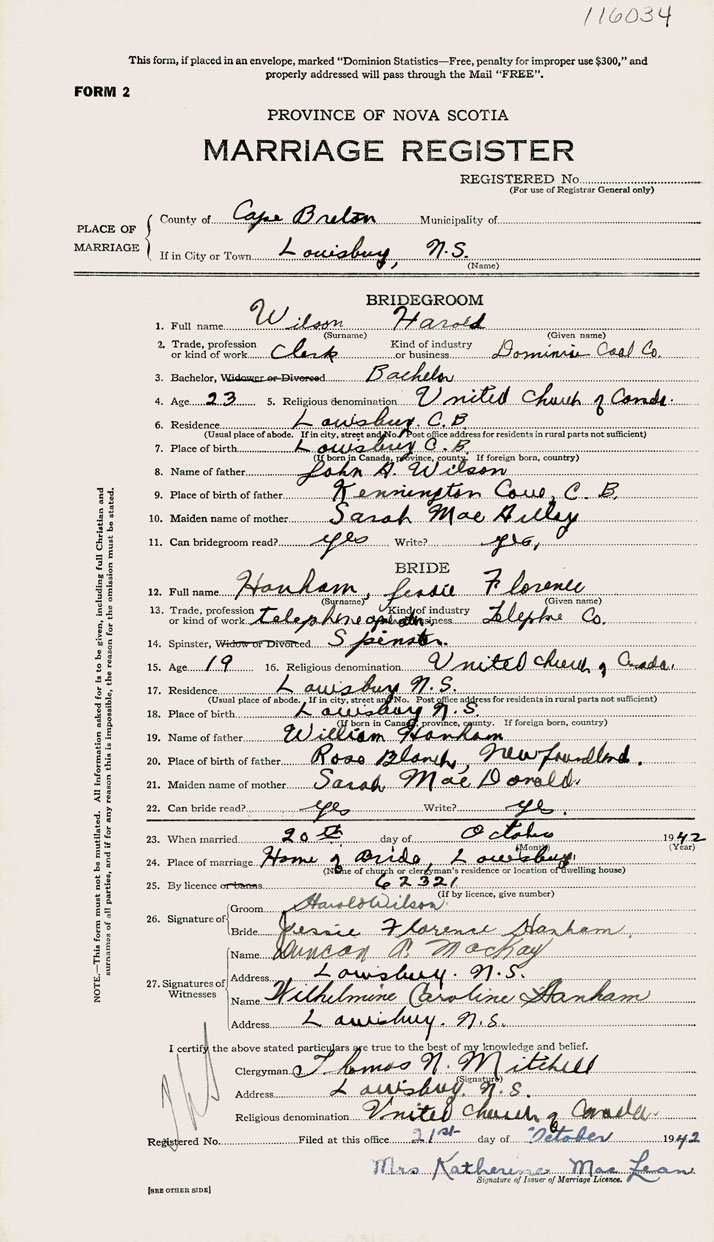 116034
This form, if placed in an envelope, marked "Dominion Statistics—Free, penalty for improper use $300," and
properly addressed will pass through the Mail "FREE".
FORM 2
PROVINCE OF NOVA SCOTIA
MARRIAGE REGISTER
REGISTERED No.
(For use of Registrar General only)
PLACE OF MARRIAGE
County of Cape Breton Municipality of
If in City or Town Louisburg, N.S.
(Name)
BRIDEGROOM
1. Full name Wilson Harold
(Surname) (Given name)
2. Trade, profession or kind of work Clerk Kind of industry or business Dominion Coal Co.
3. Bachelor, Widower or Divorced Bachelor
4. Age 23 5. Religious denomination United Church of Canada.
6. Residence Louisburg C.B.
(Usual place of abode. If in city, street and No. Post office address for residents in rural parts not sufficient)
7. Place of birth Louisburg C.B.
(If born in Canada, province, county. If foreign born, country)
8. Name of father John A. Wilson
9. Place of birth of father Kennington Cove, C.B.
10. Maiden name of mother Sarah Mac
11. Can bridegroom read? yes Write? yes,
BRIDE
12. Full name Hanham, Jessie Florence
(Surname) (Given name)
13. Trade, profession or kind of work telephone operator Kind of industry or business Telephe Co.
14. Spinster, Widow or Divorced Spinster.
15. Age 19 16. Religious denomination United Church of Canada.
17. Residence Louisburg N.S.
(Usual place of abode. If in city, street and No. Post office address for residents in rural parts not sufficient)
18. Place of birth Louisburg N.S.
(If born in Canada, province, county. If foreign born, country)
19. Name of father William Hanham
20. Place of birth of father Rose Blanch, Newfoundland.
21. Maiden name of mother Sarah Mac Donald.
22. Can bride read? yes Write? yes.
23. When married 20th day of October 1942
(Month) (Year)
24. Place of marriage Home of Bride, Louisburg.
(Name of church or clergyman's residence or location of dwelling house)
25. By licence or banns 62321
(If by licence, give number)
26. Signature of
Groom Harold Wilson
Bride Jessie Florence Hanham.
27. Signatures of Witnesses
Name Duncan A. MacKay
Address Louisburg. N.S.
Name Wilhelmine Caroline Hanham
Address Louisburg. N.S.
I certify the above stated particulars are true to the best of my knowledge and belief.
Clergyman Thomas N. Mitchell
(Signature)
Address Louisburg, N.S.
Religious denomination United Church of Canada.
Registered No. Filed at this office 21st day of October 1942
Mrs Katherene MacLean
Signature of Issuer of Marriage Licence.
[SEE OTHER SIDE]
NOTE.—This form must not be mutilated. All information asked for is to be given, including full Christian and
surnames of all parties, and if for any reason this is impossible, the reason for the omission must be stated.